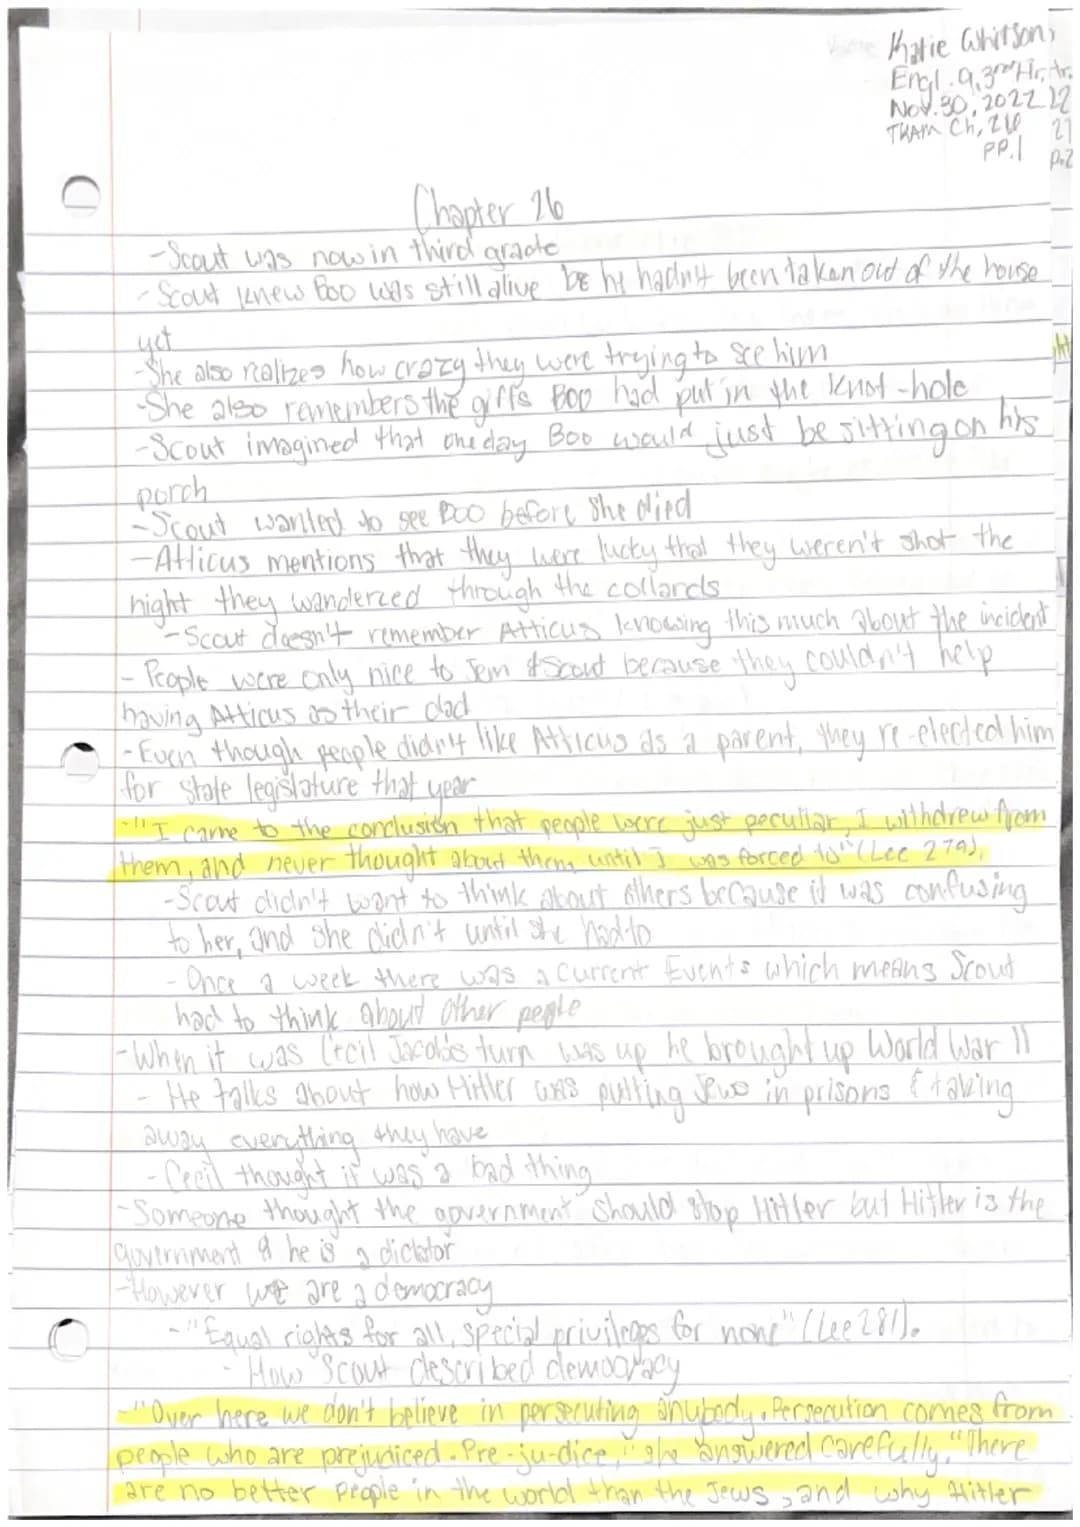 Name Katie Whitson,
Engl. 9, 3rd Hr,
Nov. 30, 2022
TKAM Ch, 26
PP. 1
Chapter 26
-Scout was now in third grade
-Scout knew Boo was still alive bc he hadn't been taken out of the house
yet
-She also realizes how crazy they were trying to see him
-She also remembers the gifts Boo had put in the knot-hole
-Scout imagined that one day Boo would just be sitting on his
porch
-Scout wanted to see Boo before she died
-Atticus mentions that they were lucky that they weren't shot the
night they wandereed through the collards
-Scout doesn't remember Atticus knowing this much about the incident
- People were only nice to Jem & Scout because they couldn't help
having Atticus as their dad
-Even though people didn't like Atticus as a parent, they re-elected him
for state legislature that year
-"I came to the conclusion that people were just peculiar, I withdrew from
them, and never thought about them until I was forced to" (Lee 279).
-Scout didn't want to think about others because it was confusing
to her, and she didn't until she had to
- Once a week there was a Current Events which means Scout
had to think about other people
-When it was Cecil Jacobs turn was up he brought up World War II
- He talks about how Hitler was putting Jews in prisons & taking
away everything they have
- Cecil thought it was a bad thing
-Someone thought the government should stop Hitler but Hitler is the
government & he is a dictator
-However we are a democracy
-"Equal rights for all, special privileges for none" (Lee 281).
- How Scout described democracy
-"Over here we don't believe in persecuting anybody. Persecution comes from
people who are prejudiced. Pre-ju-dice," she answered carefully. "There
are no better people in the world than the Jews, and why Hitler